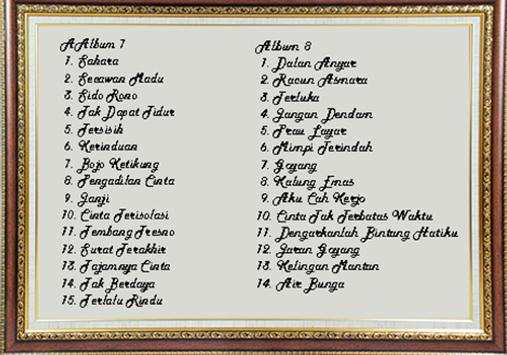 AAlbum 7
1. Sahara
2. Secawan Madu
3. Sido Rono
4. Tak Dapat Tidur
5. Tersisih
6. Kerinduan
7. Bojo Ketikung
8. Pengadilan Cinta
9. Janji
10. Cinta Terisolasi
11. Tembang Tresno
12. Surat Terakhir
13. Tajamnya Cinta
14. Tak Berdaya
15. Terlalu Rindu
Album 8
1. Dalan Anyar
2. Racun Asmara
3. Terluka
4. Jangan Dendam
5. Prau Layar
6. Mimpi Terindah
7. Goyang
8. Kalung Emas
9. Aku Cah Kerjo
10. Cinta Tak Terbatas Waktu
11. Dengarkanlah Bintang Hatiku
12. Juran Goyang
13. Kelingan Mantan
14. Air Bunga